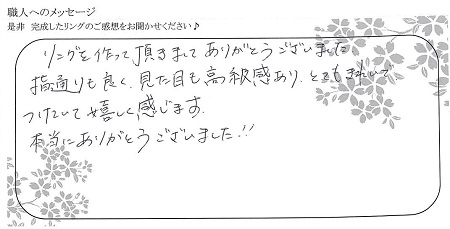 職人へのメッセージ
是非 完成したリングのご感想をお聞かせください♪
リングを作って頂きまして ありがとうございました
指通りも良く、見た目も高級感あり、とてもきれいで
つけていて嬉しく感じます。
本当にありがとうございました!!